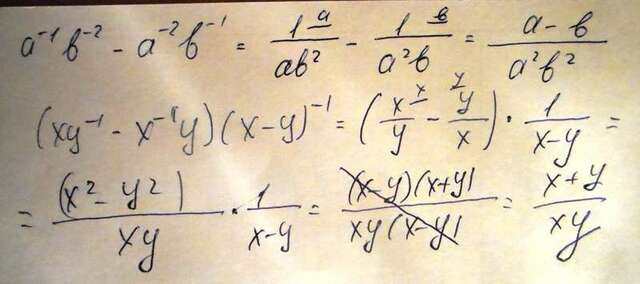 a⁻¹b⁻² - a⁻²b⁻¹ = 1^a/(ab²) - 1^b/(a²b) = (a-b)/(a²b²)
(xy⁻¹ - x⁻¹y)(x-y)⁻¹ = (x^x/y - y^y/x) · 1/(x-y) =
= (x²-y²)/(xy) · 1/(x-y) = (x-y)(x+y)/(xy(x-y)) = (x+y)/(xy)